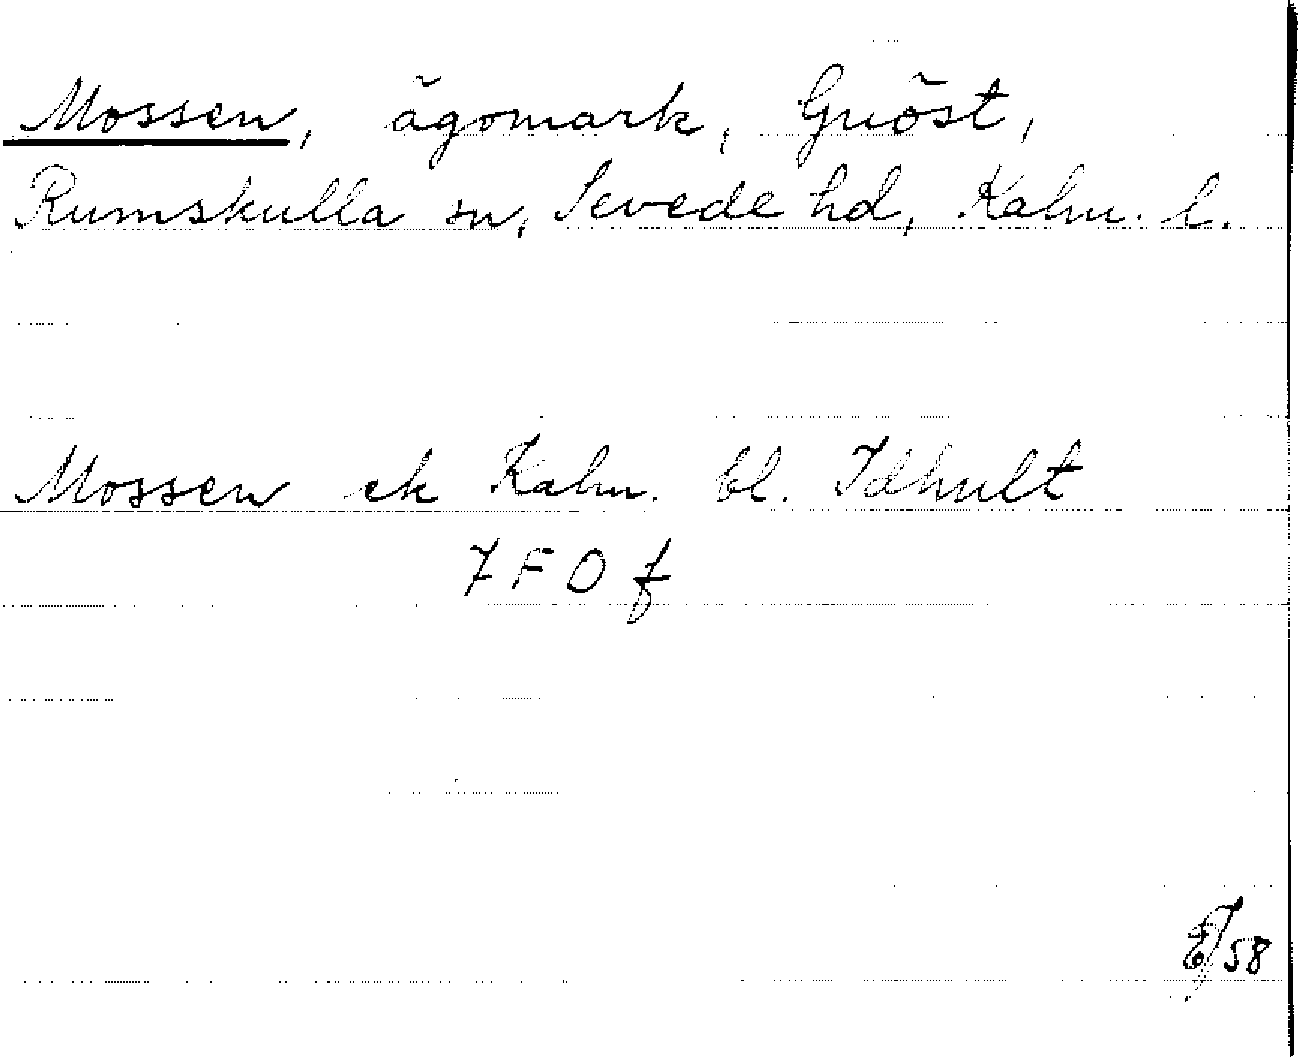 Mossen, ägomark, Gnöst,
Rumskulla sn, Sevede hd, Kalm. l.
Mossen ek Kalm. bl. Idhult
7 F 0 f
58